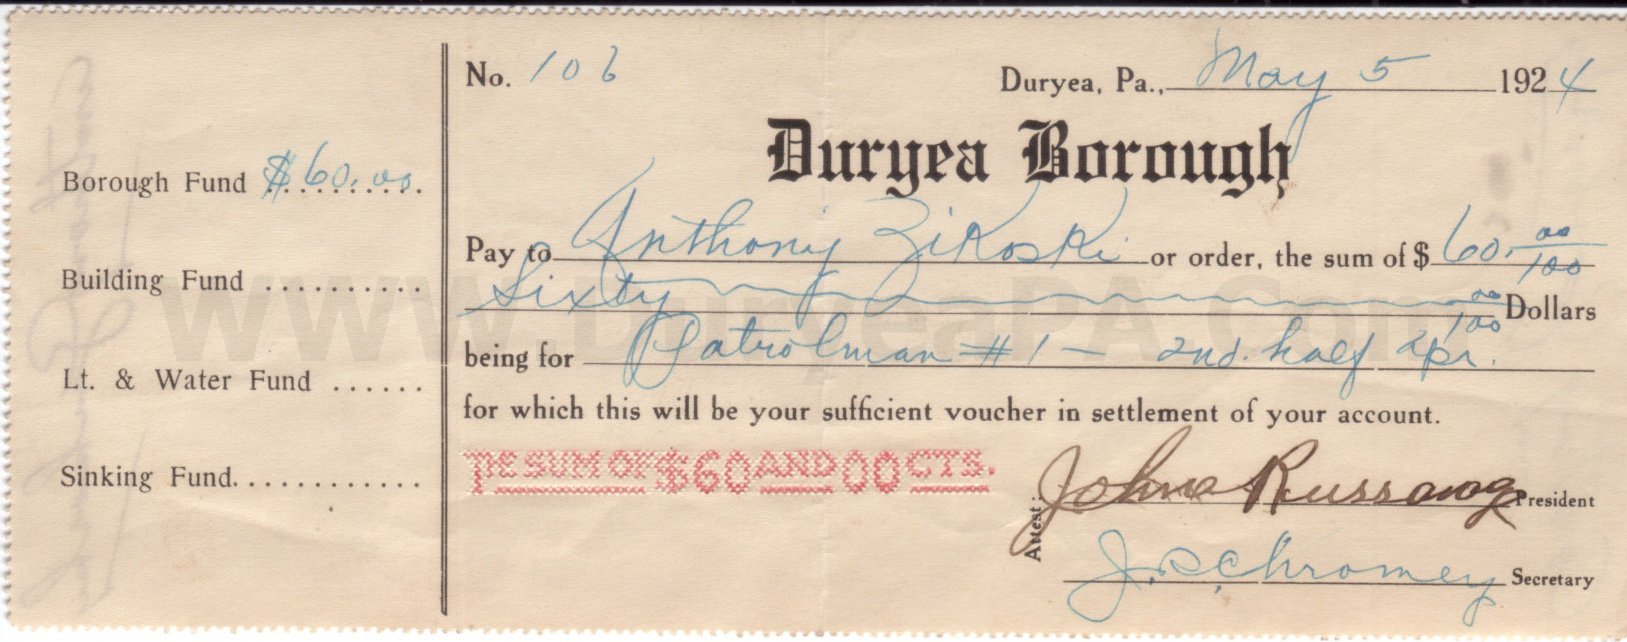 No. 106
Duryea, Pa., May 5 1924
Duryea Borough
Borough Fund $60.00
Pay to Anthony Zikoski or order, the sum of $ 60. 00/100
Sixty 00/100 Dollars
Building Fund ..........
being for Patrolman #1 — 2nd. half Apr.
Lt. & Water Fund ......
for which this will be your sufficient voucher in settlement of your account.
THE SUM OF $60 AND 00 CTS.
Sinking Fund............
Attest: John Russawog President
J. Schromey Secretary
www.DuryeaPA.Com